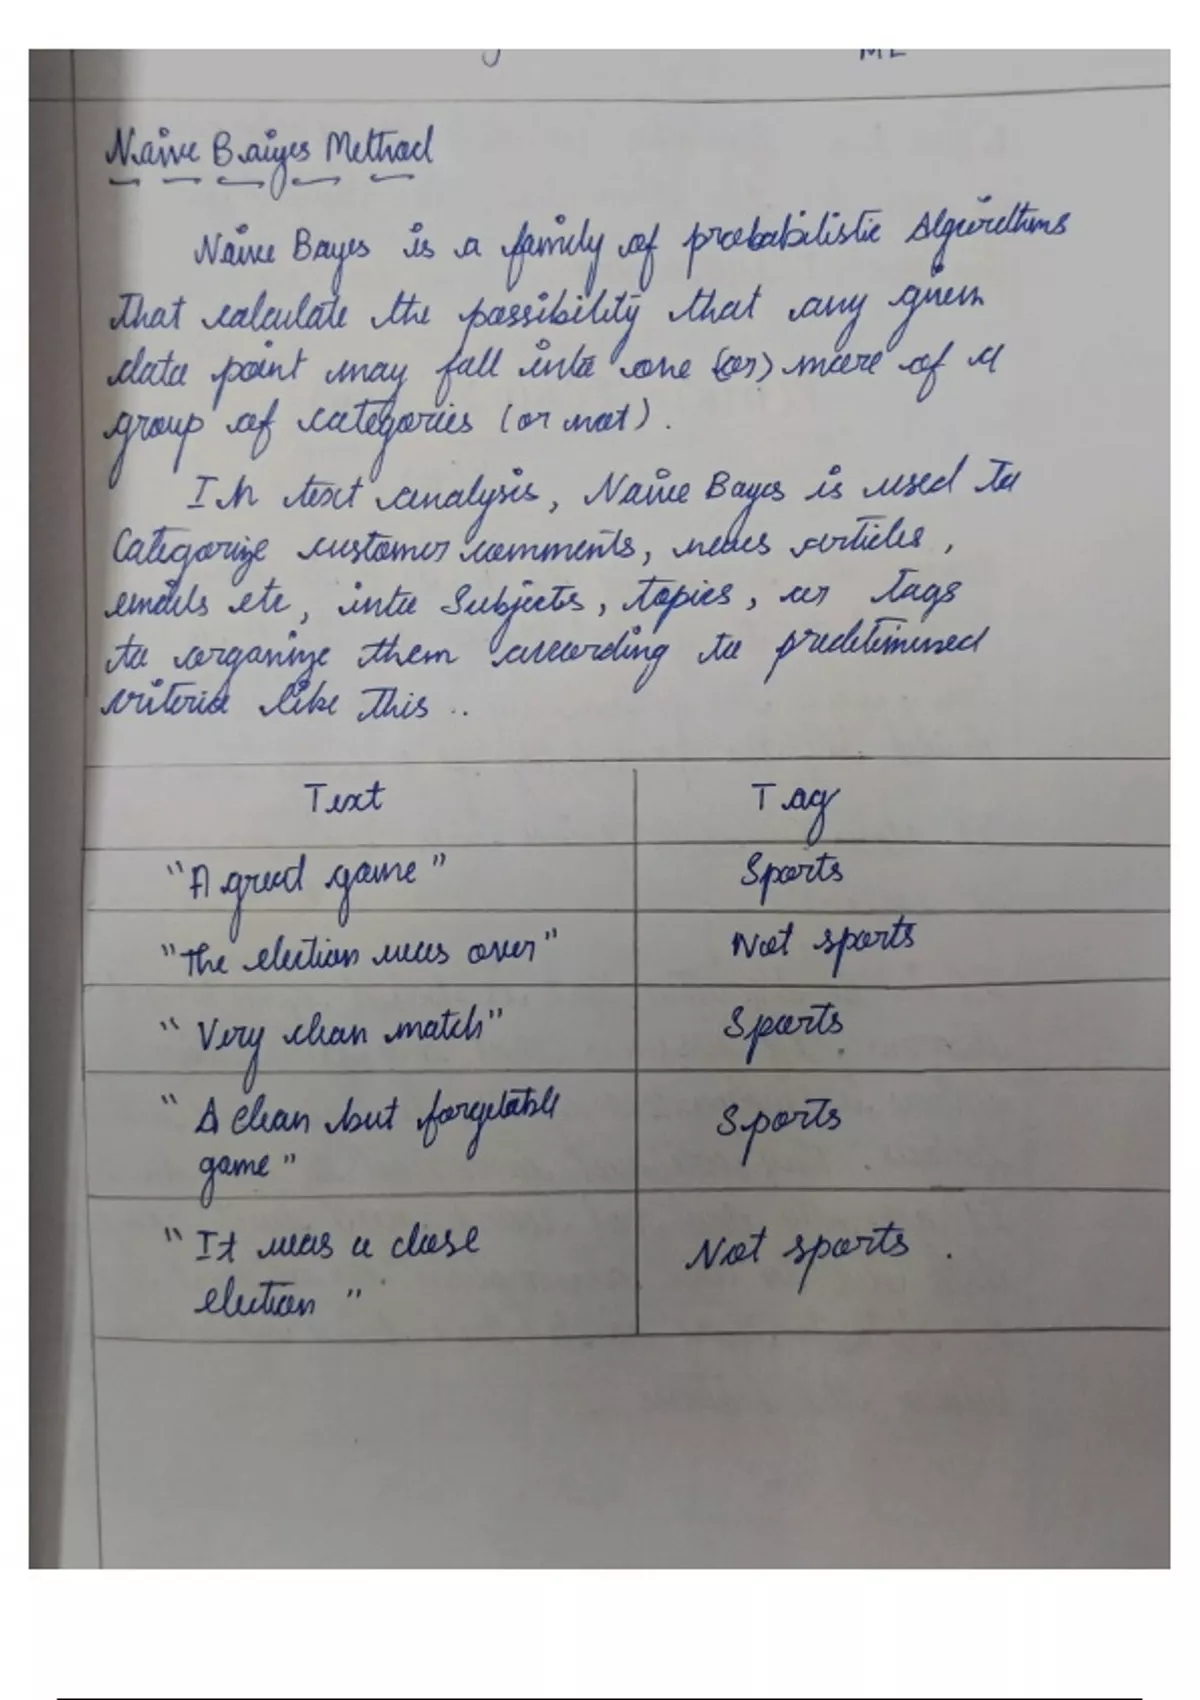 ML
Naive Baiyes Method
Naive Bayes is a family of probabilistic Algorithms
that calculate the possibility that any given
data point may fall into one (or) more of a
group of categories (or not).
In text analysis, Naive Bayes is used to
Categorize customer comments, news articles,
emails etc, into Subjects, topics, or tags
to organize them according to predetimined
criteria like this ..
Text Tag
"A great game" Sports
"The election was over" Not sports
"Very clean match" Sports
"A clean but forgetable Sports
game"
"It was a close Not sports.
election"